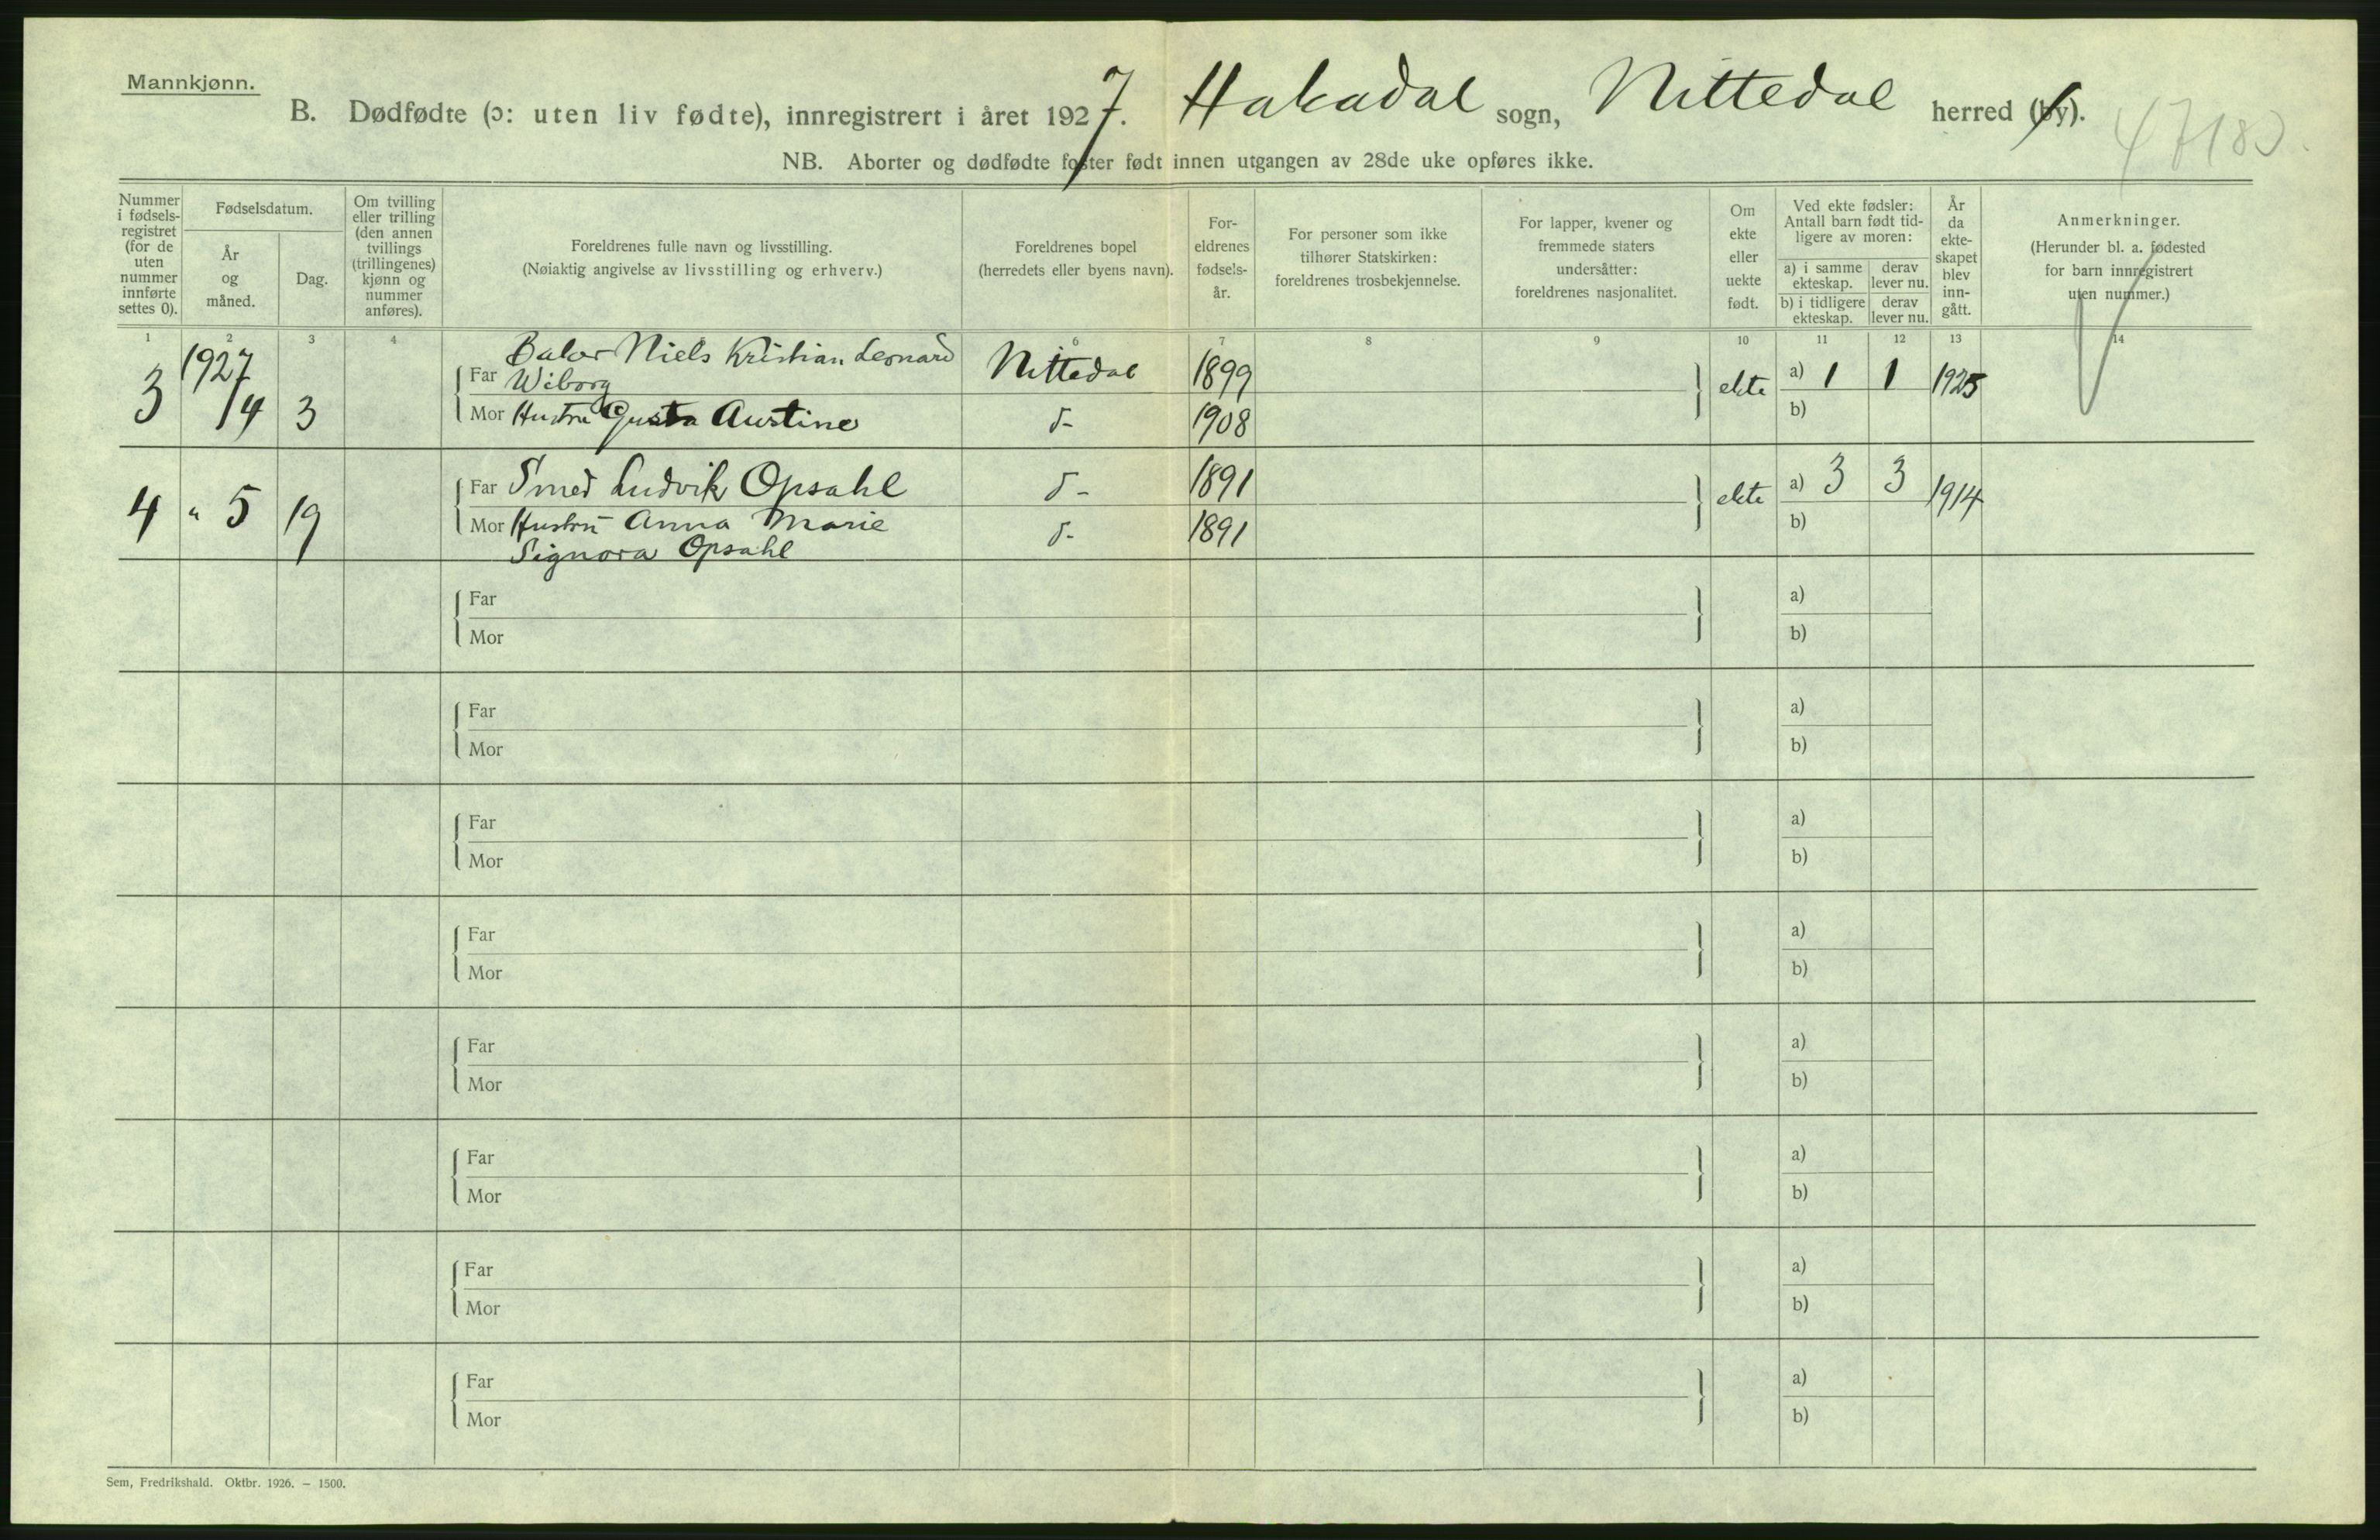 Mannkjønn.
B. Dødfødte (ɔ: uten liv fødte), innregistrert i året 1927. Hakadal sogn, Nittedal herred (by).
47183.
NB. Aborter og dødfødte foster født innen utgangen av 28de uke opføres ikke.
Nummer i fødsels-registret (for de uten nummer innførte settes 0).
Fødselsdatum.
År og måned.
Dag.
Om tvilling eller trilling (den annen tvillings (trillingenes) kjønn og nummer anføres).
Foreldrenes fulle navn og livsstilling.
(Nøiaktig angivelse av livsstilling og erhverv.)
Foreldrenes bopel
(herredets eller byens navn).
For-eldrenes fødsels-år.
For personer som ikke tilhører Statskirken: foreldrenes trosbekjennelse.
For lapper, kvener og fremmede staters undersåtter: foreldrenes nasjonalitet.
Om ekte eller uekte født.
Ved ekte fødsler: Antall barn født tid-ligere av moren:
a) i samme ekteskap. derav lever nu.
b) i tidligere ekteskap. derav lever nu.
År da ekte-skapet blev inn-gått.
Anmerkninger.
(Herunder bl. a. fødested for barn innregistrert uten nummer.)
1 2 3 4 6 7 8 9 10 11 12 13 14
3 1927 /4 3 Far Baker Niels Kristian Leonard Wiborg Nittedal 1899 ekte a) 1 1 1925
Mor Hustru Gusta Austine d- 1908 b)
4 " 5 19 Far Smed Ludvik Opsahl d- 1891 ekte a) 3 3 1914
Mor Hustru Anna Marie d- 1891 b)
Signora Opsahl
Far a)
Mor b)
Far a)
Mor b)
Far a)
Mor b)
Far a)
Mor b)
Far a)
Mor b)
Far a)
Mor b)
Far a)
Mor b)
Far a)
Mor b)
Sem, Fredrikshald. Oktbr. 1926. – 1500.